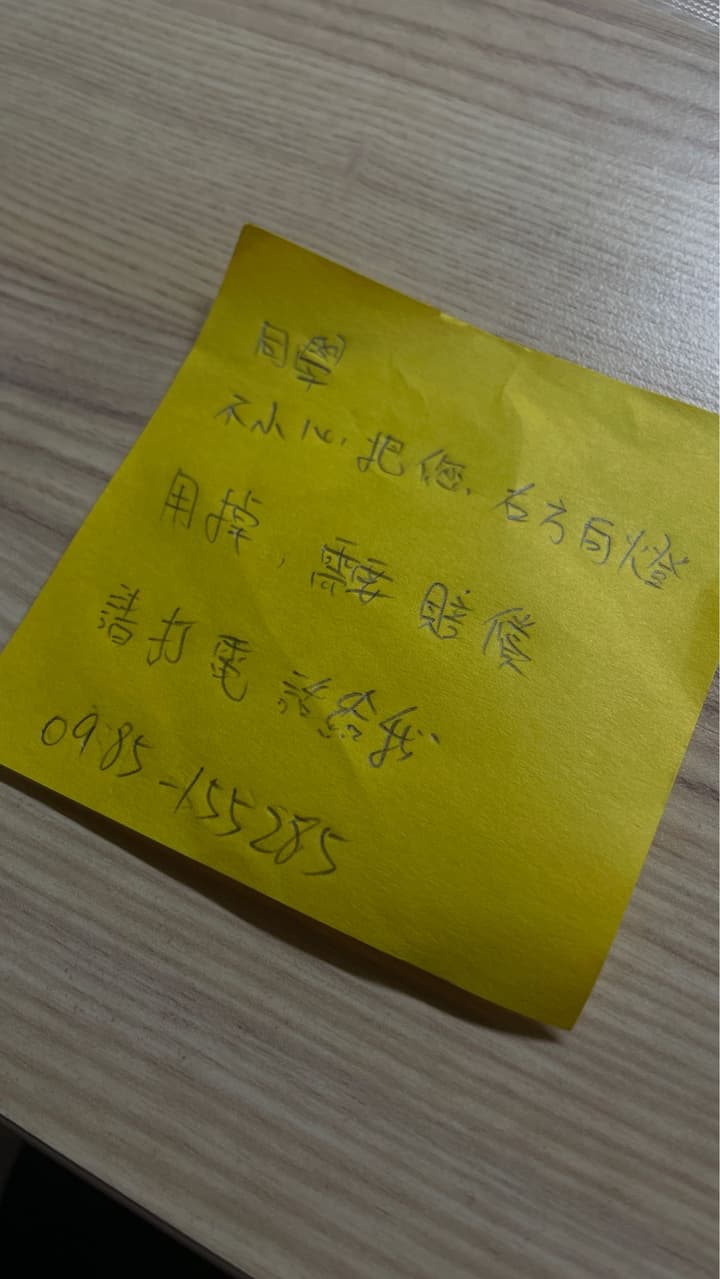 同學
不小心把您右方向燈
用掉，需要賠償
請打電話給我
0985-155285